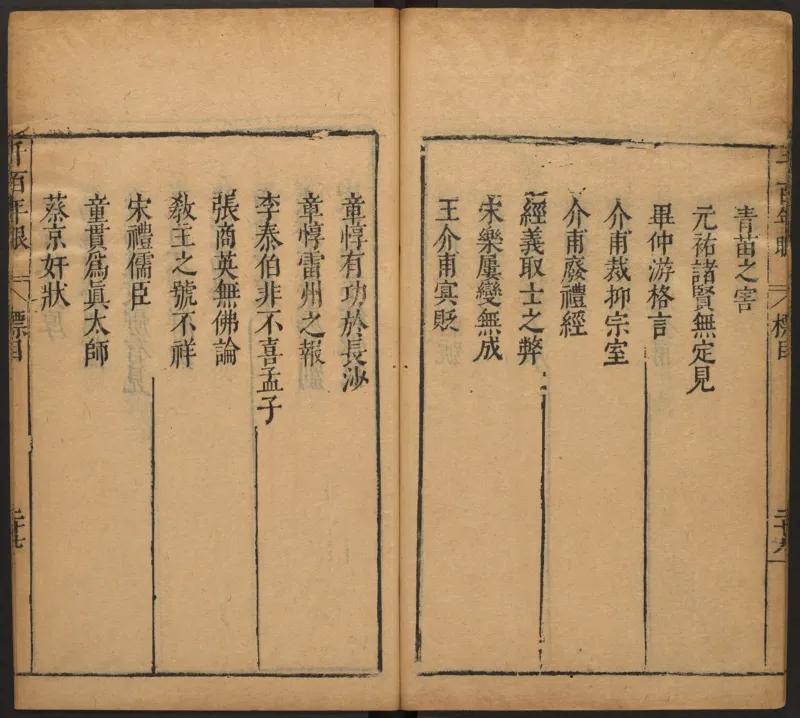 青苗之害
元祐諸賢無定見
畢仲游格言
介甫裁抑宗室
介甫廢禮經
經義取士之弊
宋樂屢變無成
王介甫寅貶
章惇有功於長沙
章惇雷州之報
李泰伯非不喜孟子
張商英無佛論
敎主之號不祥
宋禮儒臣
童貫爲眞太師
蔡京奸狀
千百年眼
標目
二十七